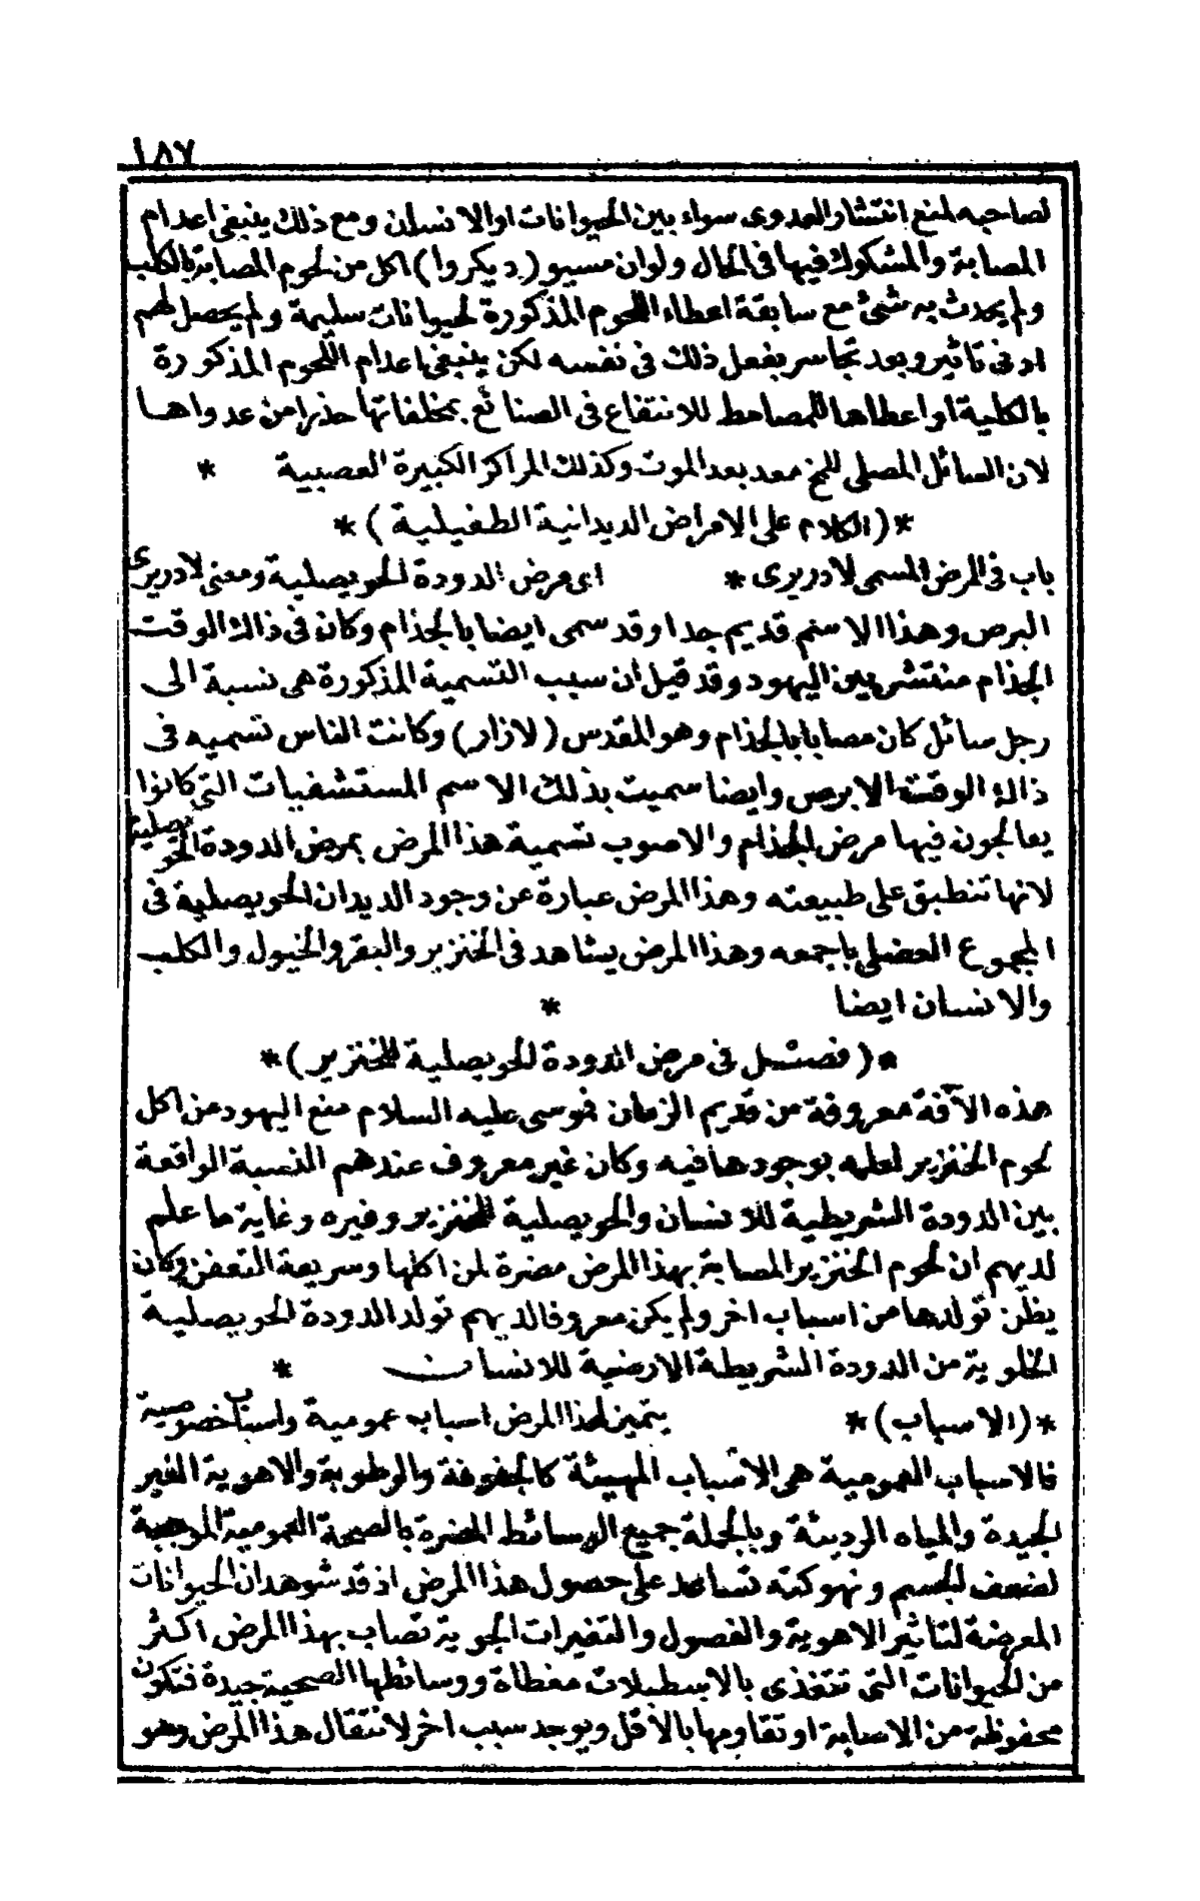 ١٨٧
لصاحبه لمنع انتشار العدوى سواء بين الحيوانات او الانسان ومع ذلك ينبغى اعدام
المصابة والمشكوك فيها فى الحال ولو ان مسيو (ديكروا) اكل من لحوم المصابة بالكلب
ولم يحدث به شئ مع سابقة اعطاء اللحوم المذكورة لحيوانات سليمة ولم يحصل لهم
ادنى تاثير وبعد تجاسر بفعل ذلك فى نفسه لكن ينبغى اعدام اللحوم المذكورة
بالكلية او اعطاها للمصاحط للانتفاع فى الصنائع بمخلفاتها حذرا من عدواها
لان السائل المصلى للمخ معد بعد الموت وكذلك المراكز الكبيرة العصبية *
*(الكلام على الامراض الديدانية الطفيلية)*
باب فى المرض المسمى لادريرى * اى مرض الدودة الحويصلية ومعنى لادريرى
البرص وهذا الاسم قديم جدا وقد سمى ايضا بالجذام وكان فى ذاك الوقت
الجذام منتشر بين اليهود وقد قيل ان سبب التسمية المذكورة هى نسبة الى
رجل سائل كان مصابا بالجذام وهو المقدس (لازار) وكانت الناس تسميه فى
ذاك الوقت الابرص وايضا سميت بذلك الاسم المستشفيات التى كانوا
يعالجون فيها مرض الجذام والاصوب تسمية هذا المرض بمرض الدودة الحويصلية
لانها تنطبق على طبيعته وهذا المرض عبارة عن وجود الديدان الحويصلية فى
المجموع العضلى باجمعه وهذا المرض يشاهد فى الخنزير والبقر والخيول والكلب
والانسان ايضا *
*(فصل فى مرض الدودة الحويصلية للخنزير)*
هذه الآفة معروفة من قديم الزمان فموسى عليه السلام منع اليهود من اكل
لحوم الخنزير لعلمه بوجودها فيه وكان غير معروف عندهم النسبة الواقعة
بين الدودة الشريطية للانسان والحويصلية للخنزير وغيره وغاية ما علم
لديهم ان لحوم الخنزير المصابة بهذا المرض مضرة لمن اكلها وسريعة التعفن وكان
يظن تولدها من اسباب اخر ولم يكن معروفا لديهم تولد الدودة الحويصلية
الخلوية من الدودة الشريطة الارضية للانسان *
*(الاسباب)* يتميز لهذا المرض اسباب عمومية واسباب خصوصية
فالاسباب العمومية هى الاسباب المهيئة كالجفوفة والرطوبة والاهوية الغير
الجيدة والمياه الرديئة وبالجملة جميع الوسائط المضرة بالصحة العمومية الموجبة
لضعف الجسم ونهوكته تساعد على حصول هذا المرض اذ قد شوهد ان الحيوانات
المعرضة لتاثير الاهوية والفصول والتغيرات الجوية تصاب بهذا المرض اكثر
من الحيوانات التى تتغذى بالاسطبلات مغطاة ووسائطها الصحية جيدة فتكون
محفوظة من الاصابة او تقاومها بالاقل ويوجد سبب اخر لانتقال هذا المرض وهو